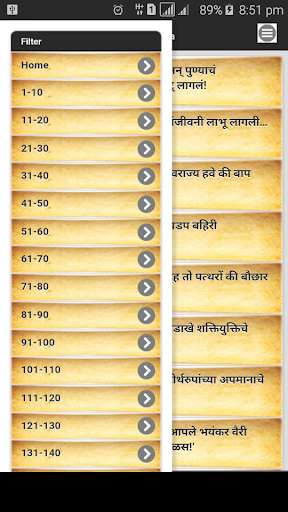 89% 8:51 pm
Filter
Home
1-10
11-20
21-30
31-40
41-50
51-60
61-70
71-80
81-90
91-100
101-110
111-120
121-130
131-140
पुण्याचं
लागलं!
जीवनी लाभू लागली...
वराज्य हवे की बाप
डप बहिरी
ह तो पत्थरों की बौछार
डाखे शक्तियुक्तिचे
र्थरुपांच्या अपमानाचे
आपले भयंकर वैरी
ळस!'